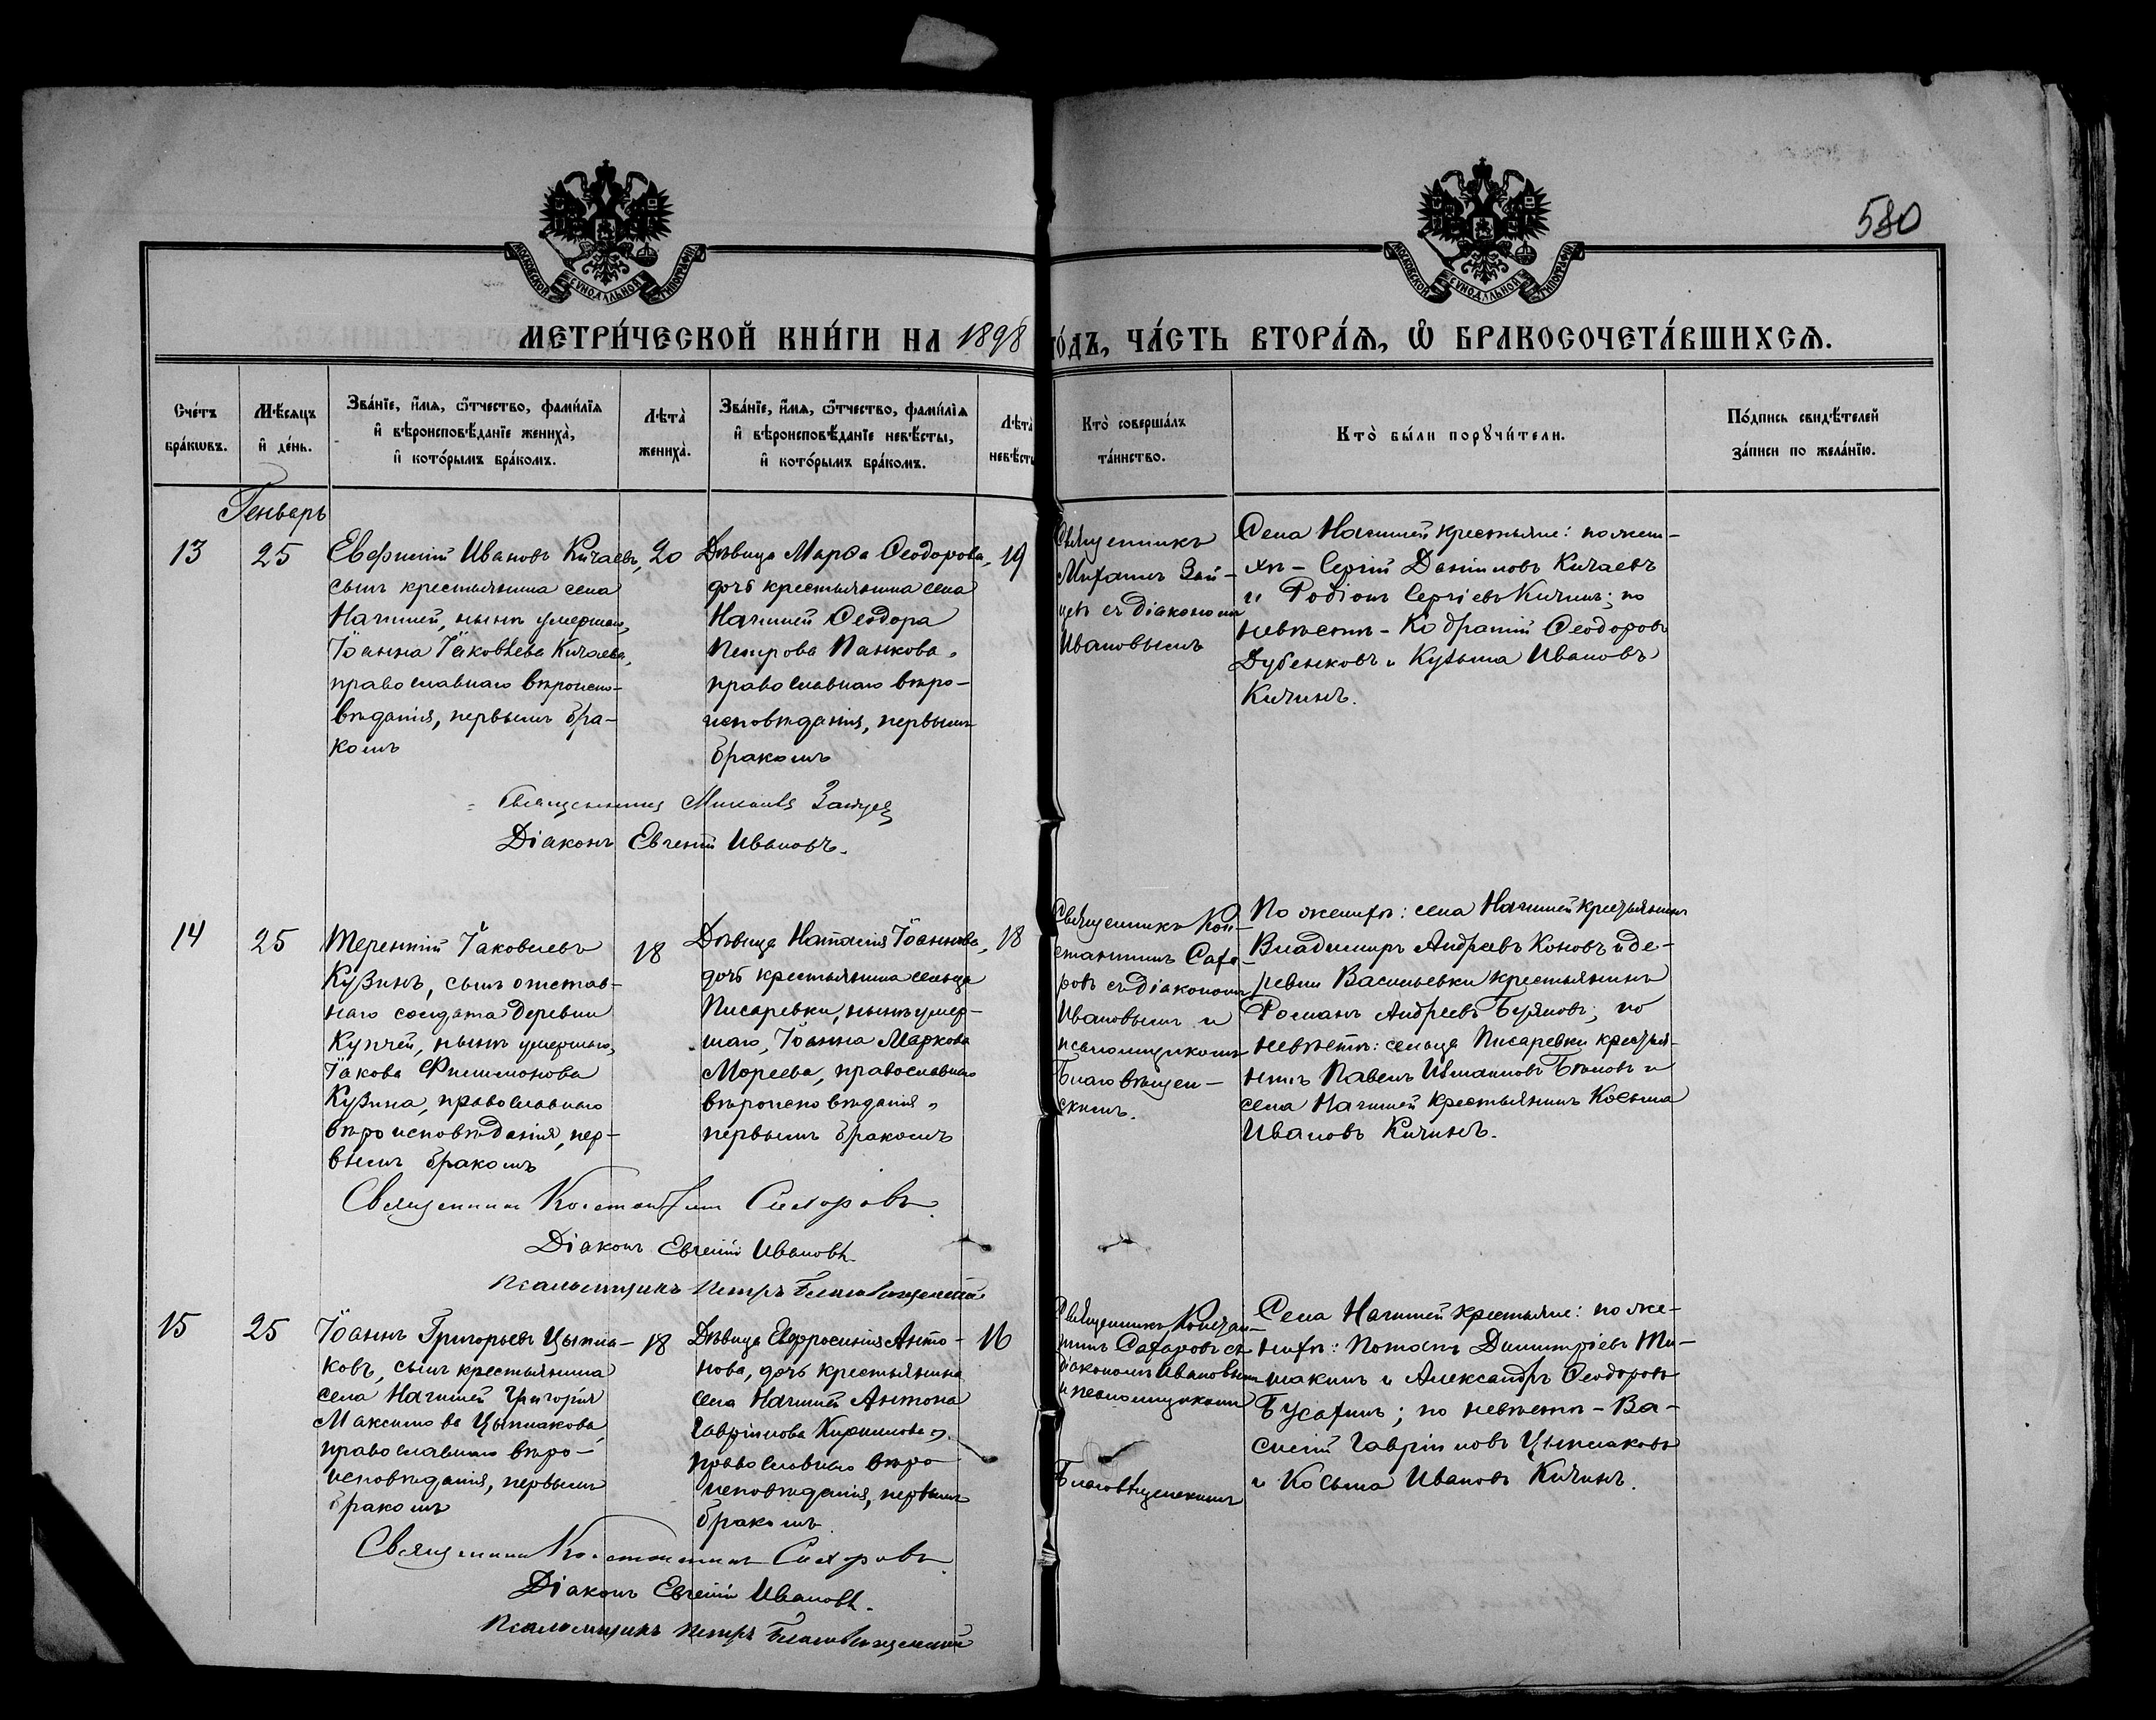 580
МОСКОВСКОЙ СѴНОДАЛЬНОЙ ТИПОГРАФІИ
МОСКОВСКОЙ СѴНОДАЛЬНОЙ ТИПОГРАФІИ
МЕТРИ́ЧЕСКОЙ КНИ́ГИ НА 1898 ГО́ДЪ, ЧА́СТЬ ВТОРА́Ѧ, Ѽ БРАКОСОЧЕТА́ВШИХСѦ.
Сче́тъ
бра́кωвъ.
Мѣ́сѧцъ
и҆ де́нь.
Зва́нїе, и҆́мѧ, ѻ҆́тчество, фами́лїѧ
и҆ вѣроисповѣ́данїе жениха̀,
и҆ кото́рымъ бра́комъ.
Лѣта̀
жениха̀.
Зва́нїе, и҆́мѧ, ѻ҆́тчество, фами́лїѧ
и҆ вѣроисповѣ́данїе невѣ́сты,
и҆ кото́рымъ бра́комъ.
Лѣта̀
невѣ́сты
Кто̀ соверша́лъ
та́инство.
Кто̀ бы́ли порꙋчи́тели.
По́дпись свидѣ́телей
за́писи по жела́нїю.
Генварь
13
25
Евфимій Ивановъ Кичаевъ,
сынъ крестьянина села
Начишей, нынѣ умершаго,
Іоанна Іаковлева Кичаева,
православнаго вѣроиспо-
вѣданія, первымъ бра-
комъ
20
Дѣвица Марѳа Ѳеодорова,
дочь крестьянина села
Начишей Ѳеодора
Петрова Панкова,
православнаго вѣро-
исповѣданія, первымъ
бракомъ
19
Священникъ
Михаилъ Зай-
цевъ съ діакономъ
Ивановымъ
Села Начишей крестьяне: по жени-
хѣ – Сергій Даніиловъ Кичаевъ
и Родіонъ Сергіевъ Кичинъ; по
невѣстѣ – Кодратій Ѳеодоровъ
Дубенковъ и Кузьма Ивановъ
Кичинъ.
Священникъ Михаилъ Зайцев
Діаконъ Евгеній Ивановъ.
14
25
Терентій Іаковлевъ
Кузинъ, сынъ отстав-
наго солдата деревни
Купчей, нынѣ умершаго,
Іакова Филимонова
Кузина, православнаго
вѣроисповѣданія, пер-
вымъ бракомъ
18
Дѣвица Наталія Іоаннова,
дочь крестьянина сельца
Писаревки, нынѣ умер-
шаго, Іоанна Маркова
Мореева, православнаго
вѣроисповѣданія,
первымъ бракомъ
18
Священникъ Кон-
стантинъ Саха-
ровъ съ діакономъ
Ивановымъ и
псаломщикомъ
Благовѣщен-
скимъ.
По женихѣ: села Начишей крестьянинъ
Владимиръ Андреевъ Коновъ и де-
ревни Васильевки крестьянинъ
Романъ Андреевъ Буяновъ; по
невѣстѣ: сельца Писаревки крестья-
нинъ Павелъ Бѣловъ и
села Начишей крестьянинъ Косьма
Ивановъ Кичинъ.
Священникъ Константинъ Сахаровъ.
Діаконъ Евгеній Ивановъ.
Псаломщикъ Петръ Благовѣщенскій
15
25
Іоаннъ Григорьевъ Цыпла-
ковъ, сынъ крестьянина
села Начишей Григорія
Максимова Цыплакова,
православнаго вѣро-
исповѣданія, первымъ
бракомъ
18
Дѣвица Евфросинія Анто-
нова, дочь крестьянина
села Начишей Антона
Гавріилова Кирилова,
православнаго вѣро
исповѣданія, первымъ
бракомъ.
16
Священникъ Констан-
тинъ Сахаровъ съ
діакономъ Ивановымъ
и псаломщикомъ
Благовѣщенскимъ
Села Начишей крестьяне: по же-
нихѣ: Потапъ Димитріевъ Ти-
макинъ и Александръ Ѳеодоровъ
Бусаринъ; по невѣстѣ – Ва-
силій Гавріиловъ Цыплаковъ
и Косьма Ивановъ Кичинъ.
Священникъ Константинъ Сахаровъ.
Діаконъ Евгеній Ивановъ.
Псаломщикъ Петръ Благовѣщенскій